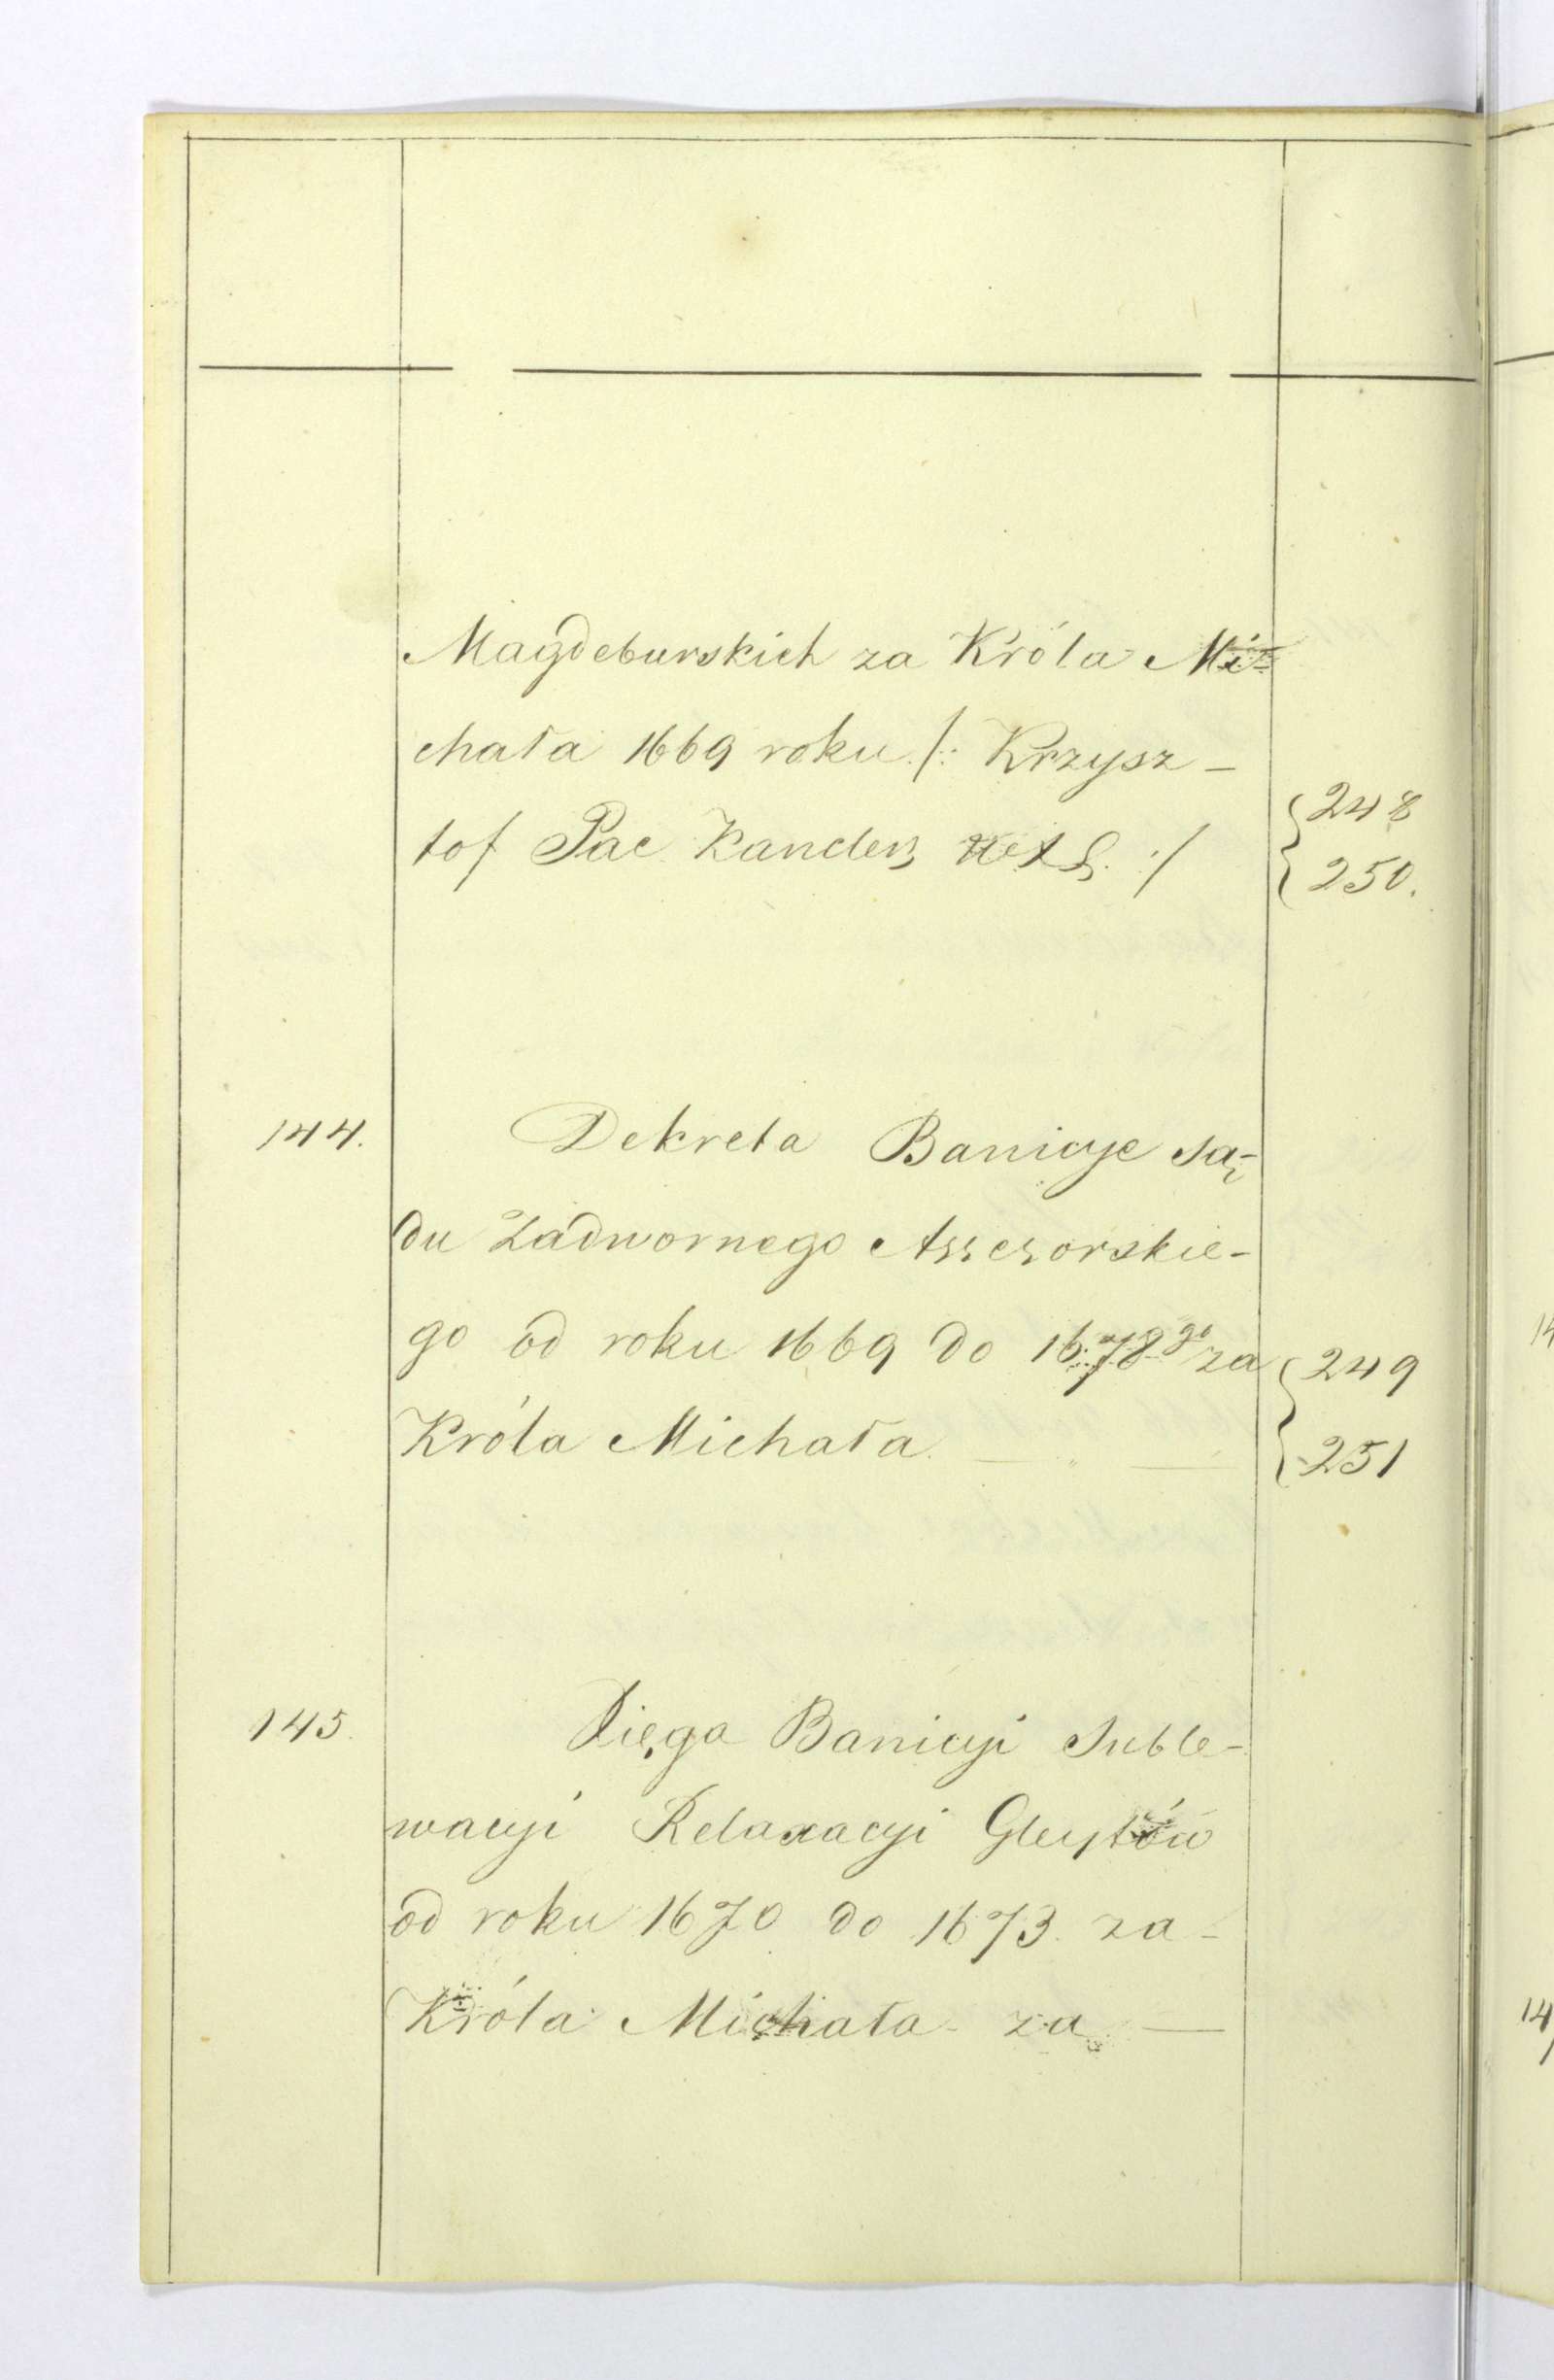 Magdeburskich za Króla Mi-
chała 1669 roku /: Krzysz-
tof Pac Kanclerz :/
248
250.
144. Dekreta Banicye Są-
du Zadwornego Assesorskie-
go od roku 1669 do 1678go za
Króla Michała
249
251
145. Xięga Banicyi Suble-
wacyi Relaxacyi Gleytów
od roku 1670 do 1673 za-
Króla Michała za —